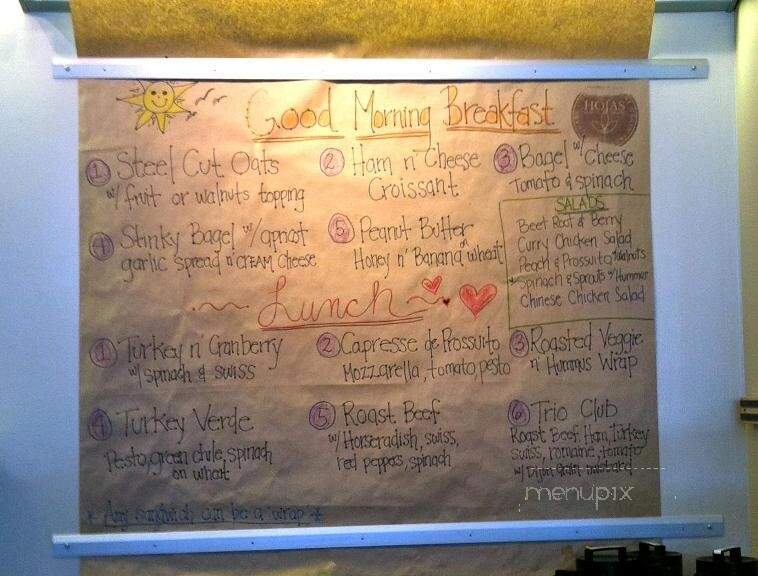 Good Morning Breakfast
HOJAS
1 Steel Cut Oats
w/ fruit or walnuts topping
2 Ham n' Cheese
Croissant
3 Bagel w/ cheese
Tomato & spinach
4 Stinky Bagel w/ apricot
garlic spread n' cream cheese
5 Peanut Butter
Honey n' Banana on wheat
SALADS
Beet Root & Berry
Curry Chicken Salad
Peach & Prossuito w/ walnuts
Spinach & Sprouts w/ Hummus
Chinese Chicken Salad
Lunch
1 Turkey n' Cranberry
w/ spinach & swiss
2 Capresse de Prossuito
Mozzarella, tomato, pesto
3 Roasted Veggie
n' Hummus Wrap
4 Turkey Verde
Pesto, green chile, spinach
on wheat
5 Roast Beef
w/ Horseradish, swiss,
red peppers, spinach
6 Trio Club
Roast Beef, Ham, Turkey
swiss, romaine, tomato
w/ Dijon grain mustard
* Any sandwich can be a wrap *
menupix